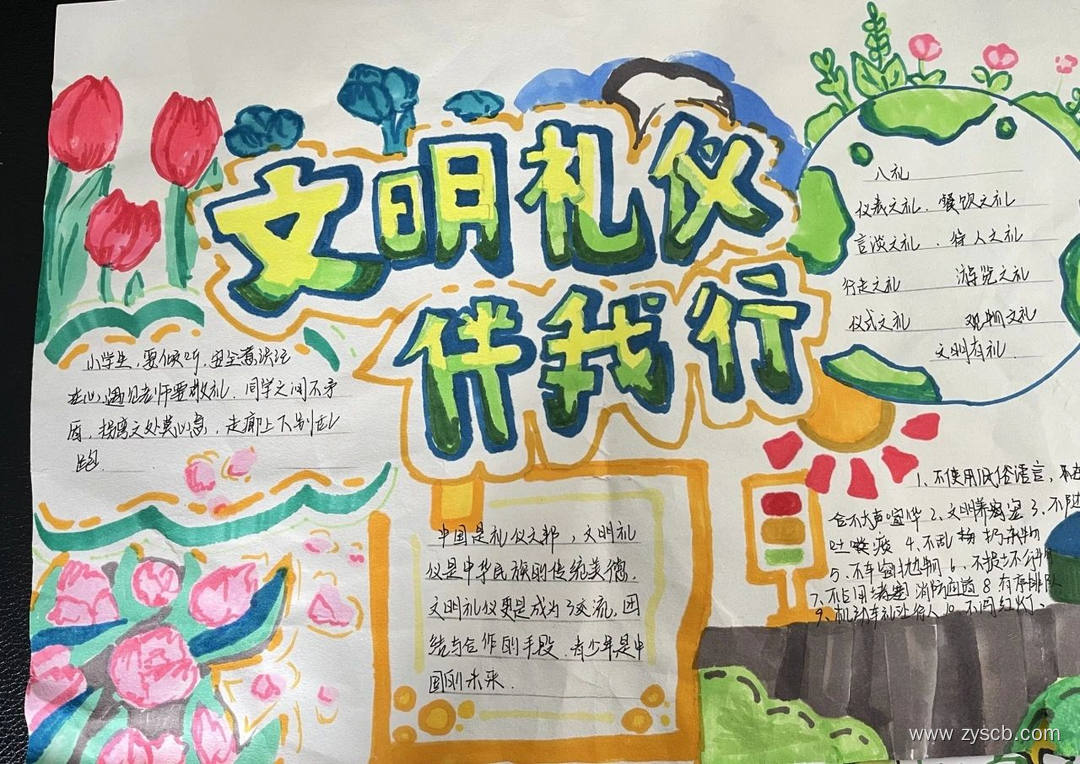 文明礼仪
伴我行
小学生,要倾听,安全意识记
在心,遇见老师要敬礼,同学之间不矛
盾,拐弯之处莫心急,走廊上下别乱
跑.
八礼
仪表之礼、餐饮之礼
言谈之礼、待人之礼
行走之礼 游览之礼
仪式之礼 观物之礼
文明有礼.
中国是礼仪之邦,文明礼
仪是中华民族的传统美德,
文明礼仪更是成为了交流,团
结与合作的手段.青少年是中
国的未来.
1、不使用低俗语言,
合不大声喧哗 2、文明养宠 3、不随
吐痰 4、不乱扔杂物
5、不车窗抛物 6、不
7、不占用堵塞消防通道 8 有序排队
9、机动车礼让行人 10、不闯红灯、
www.zyscb.com